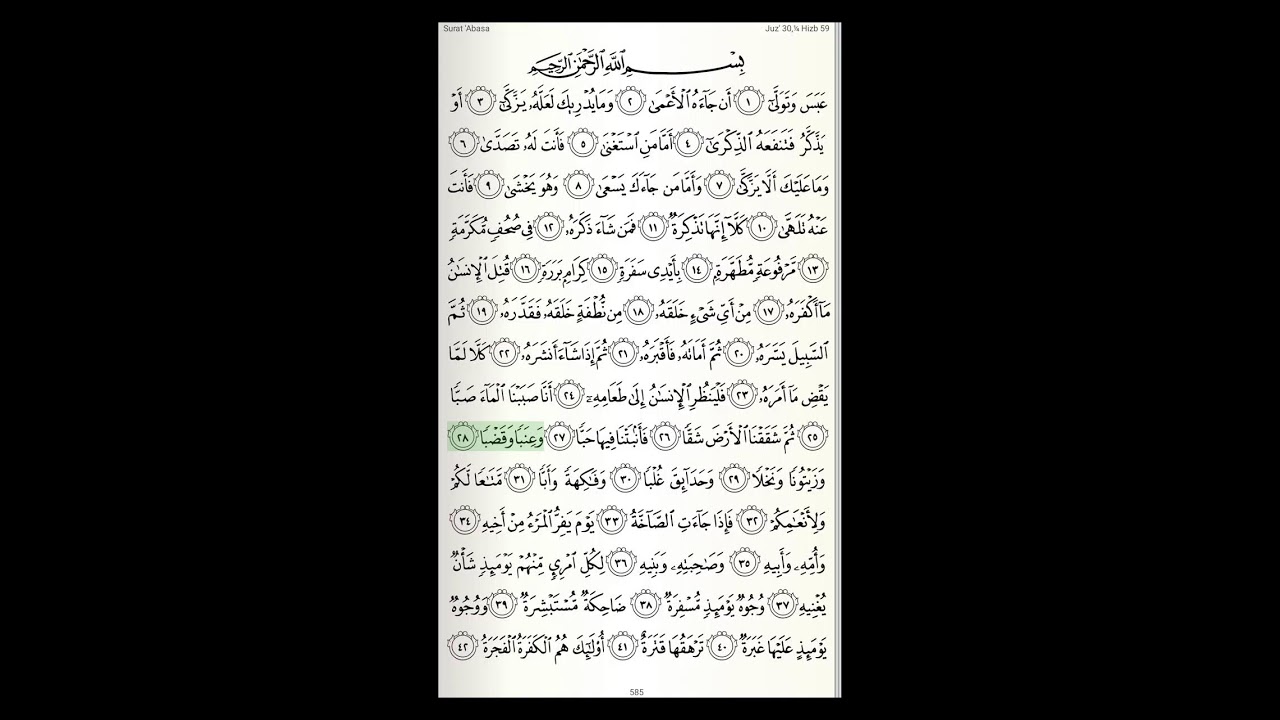 Surat 'Abasa Juz' 30,¼ Hizb 59
بِسْمِ ٱللَّهِ ٱلرَّحْمَٰنِ ٱلرَّحِيمِ
عَبَسَ وَتَوَلَّىٰٓ ١ أَن جَآءَهُ ٱلْأَعْمَىٰ ٢ وَمَا يُدْرِيكَ لَعَلَّهُۥ يَزَّكَّىٰٓ ٣ أَوْ
يَذَّكَّرُ فَتَنفَعَهُ ٱلذِّكْرَىٰٓ ٤ أَمَّا مَنِ ٱسْتَغْنَىٰ ٥ فَأَنتَ لَهُۥ تَصَدَّىٰ ٦
وَمَا عَلَيْكَ أَلَّا يَزَّكَّىٰ ٧ وَأَمَّا مَن جَآءَكَ يَسْعَىٰ ٨ وَهُوَ يَخْشَىٰ ٩ فَأَنتَ
عَنْهُ تَلَهَّىٰ ١٠ كَلَّآ إِنَّهَا تَذْكِرَةٌ ١١ فَمَن شَآءَ ذَكَرَهُۥ ١٢ فِى صُحُفٍ مُّكَرَّمَةٍ
١٣ مَّرْفُوعَةٍ مُّطَهَّرَةٍۭ ١٤ بِأَيْدِى سَفَرَةٍ ١٥ كِرَامٍۭ بَرَرَةٍ ١٦ قُتِلَ ٱلْإِنسَٰنُ
مَآ أَكْفَرَهُۥ ١٧ مِنْ أَىِّ شَىْءٍ خَلَقَهُۥ ١٨ مِن نُّطْفَةٍ خَلَقَهُۥ فَقَدَّرَهُۥ ١٩ ثُمَّ
ٱلسَّبِيلَ يَسَّرَهُۥ ٢٠ ثُمَّ أَمَاتَهُۥ فَأَقْبَرَهُۥ ٢١ ثُمَّ إِذَا شَآءَ أَنشَرَهُۥ ٢٢ كَلَّا لَمَّا
يَقْضِ مَآ أَمَرَهُۥ ٢٣ فَلْيَنظُرِ ٱلْإِنسَٰنُ إِلَىٰ طَعَامِهِۦٓ ٢٤ أَنَّا صَبَبْنَا ٱلْمَآءَ صَبًّا
٢٥ ثُمَّ شَقَقْنَا ٱلْأَرْضَ شَقًّا ٢٦ فَأَنۢبَتْنَا فِيهَا حَبًّا ٢٧ وَعِنَبًا وَقَضْبًا ٢٨
وَزَيْتُونًا وَنَخْلًا ٢٩ وَحَدَآئِقَ غُلْبًا ٣٠ وَفَٰكِهَةً وَأَبًّا ٣١ مَّتَٰعًا لَّكُمْ
وَلِأَنْعَٰمِكُمْ ٣٢ فَإِذَا جَآءَتِ ٱلصَّآخَّةُ ٣٣ يَوْمَ يَفِرُّ ٱلْمَرْءُ مِنْ أَخِيهِ ٣٤
وَأُمِّهِۦ وَأَبِيهِ ٣٥ وَصَٰحِبَتِهِۦ وَبَنِيهِ ٣٦ لِكُلِّ ٱمْرِئٍ مِّنْهُمْ يَوْمَئِذٍ شَأْنٌ
يُغْنِيهِ ٣٧ وُجُوهٌ يَوْمَئِذٍ مُّسْفِرَةٌ ٣٨ ضَاحِكَةٌ مُّسْتَبْشِرَةٌ ٣٩ وَوُجُوهٌ
يَوْمَئِذٍ عَلَيْهَا غَبَرَةٌ ٤٠ تَرْهَقُهَا قَتَرَةٌ ٤١ أُو۟لَٰٓئِكَ هُمُ ٱلْكَفَرَةُ ٱلْفَجَرَةُ ٤٢
585